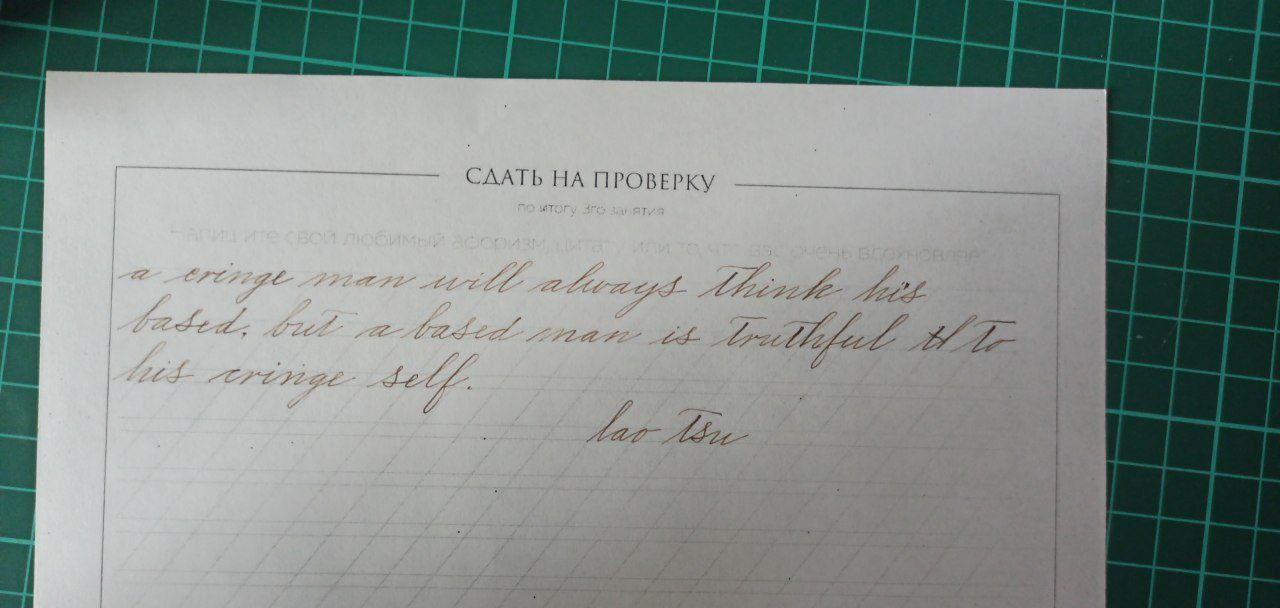 СДАТЬ НА ПРОВЕРКУ
по итогу 3го занятия
Напишите свой любимый афоризм, цитату или то, что вас очень вдохновляет
a cringe man will always think his
based, but a based man is truthful th to
his cringe self.
lao tsu